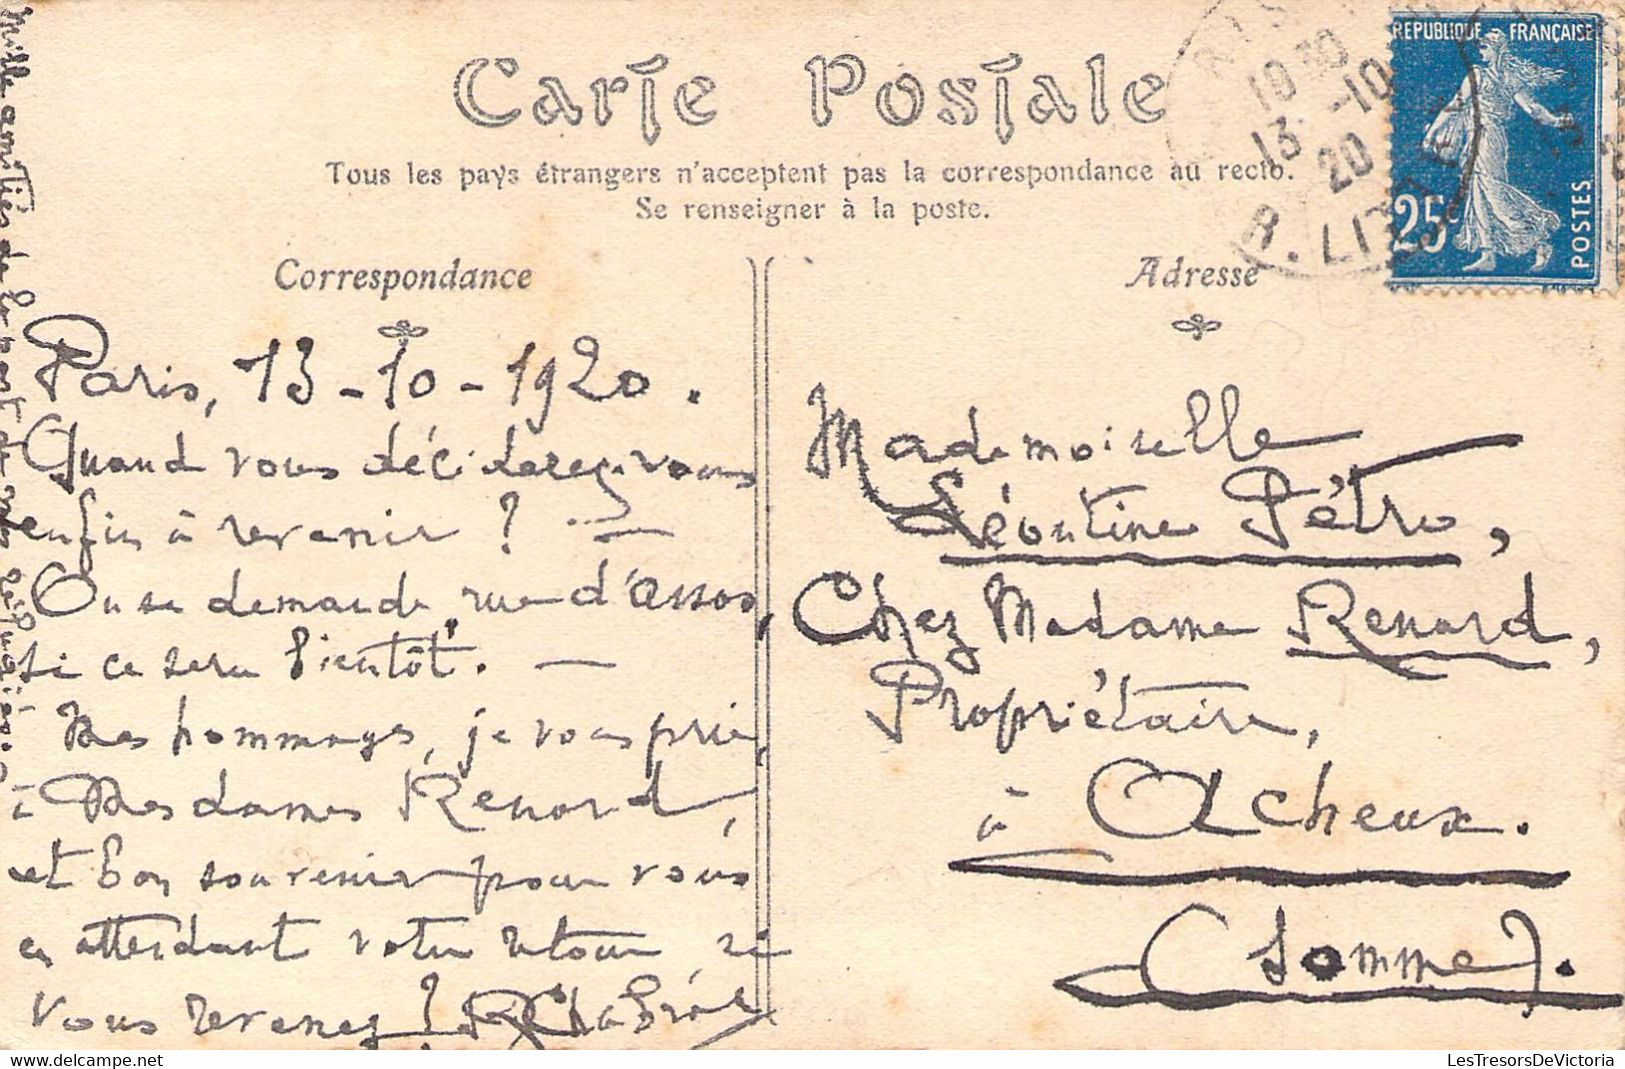 Carte Postale
Tous les pays étrangers n'acceptent pas la correspondance au recto.
Se renseigner à la poste.
Correspondance
Paris, 13-10-1920.
Quand vous déciderez-vous
enfin à revenir ? ... —
On se demande, rue d'Assas,
si ce sera bientôt. —
Mes hommages, je vous prie,
à Mesdames Renard,
et bon souvenir pour vous
en attendant votre retour, si
vous revenez ?
Mille amitiés de la part de
Adresse
Mademoiselle
Léontine Pétre,
Chez Madame Renard,
Propriétaire,
à Acheux.
(Somme).
REPUBLIQUE FRANÇAISE
25c
POSTES
10 30
13 -10
20
R. LITTRE
LesTresorsDeVictoria